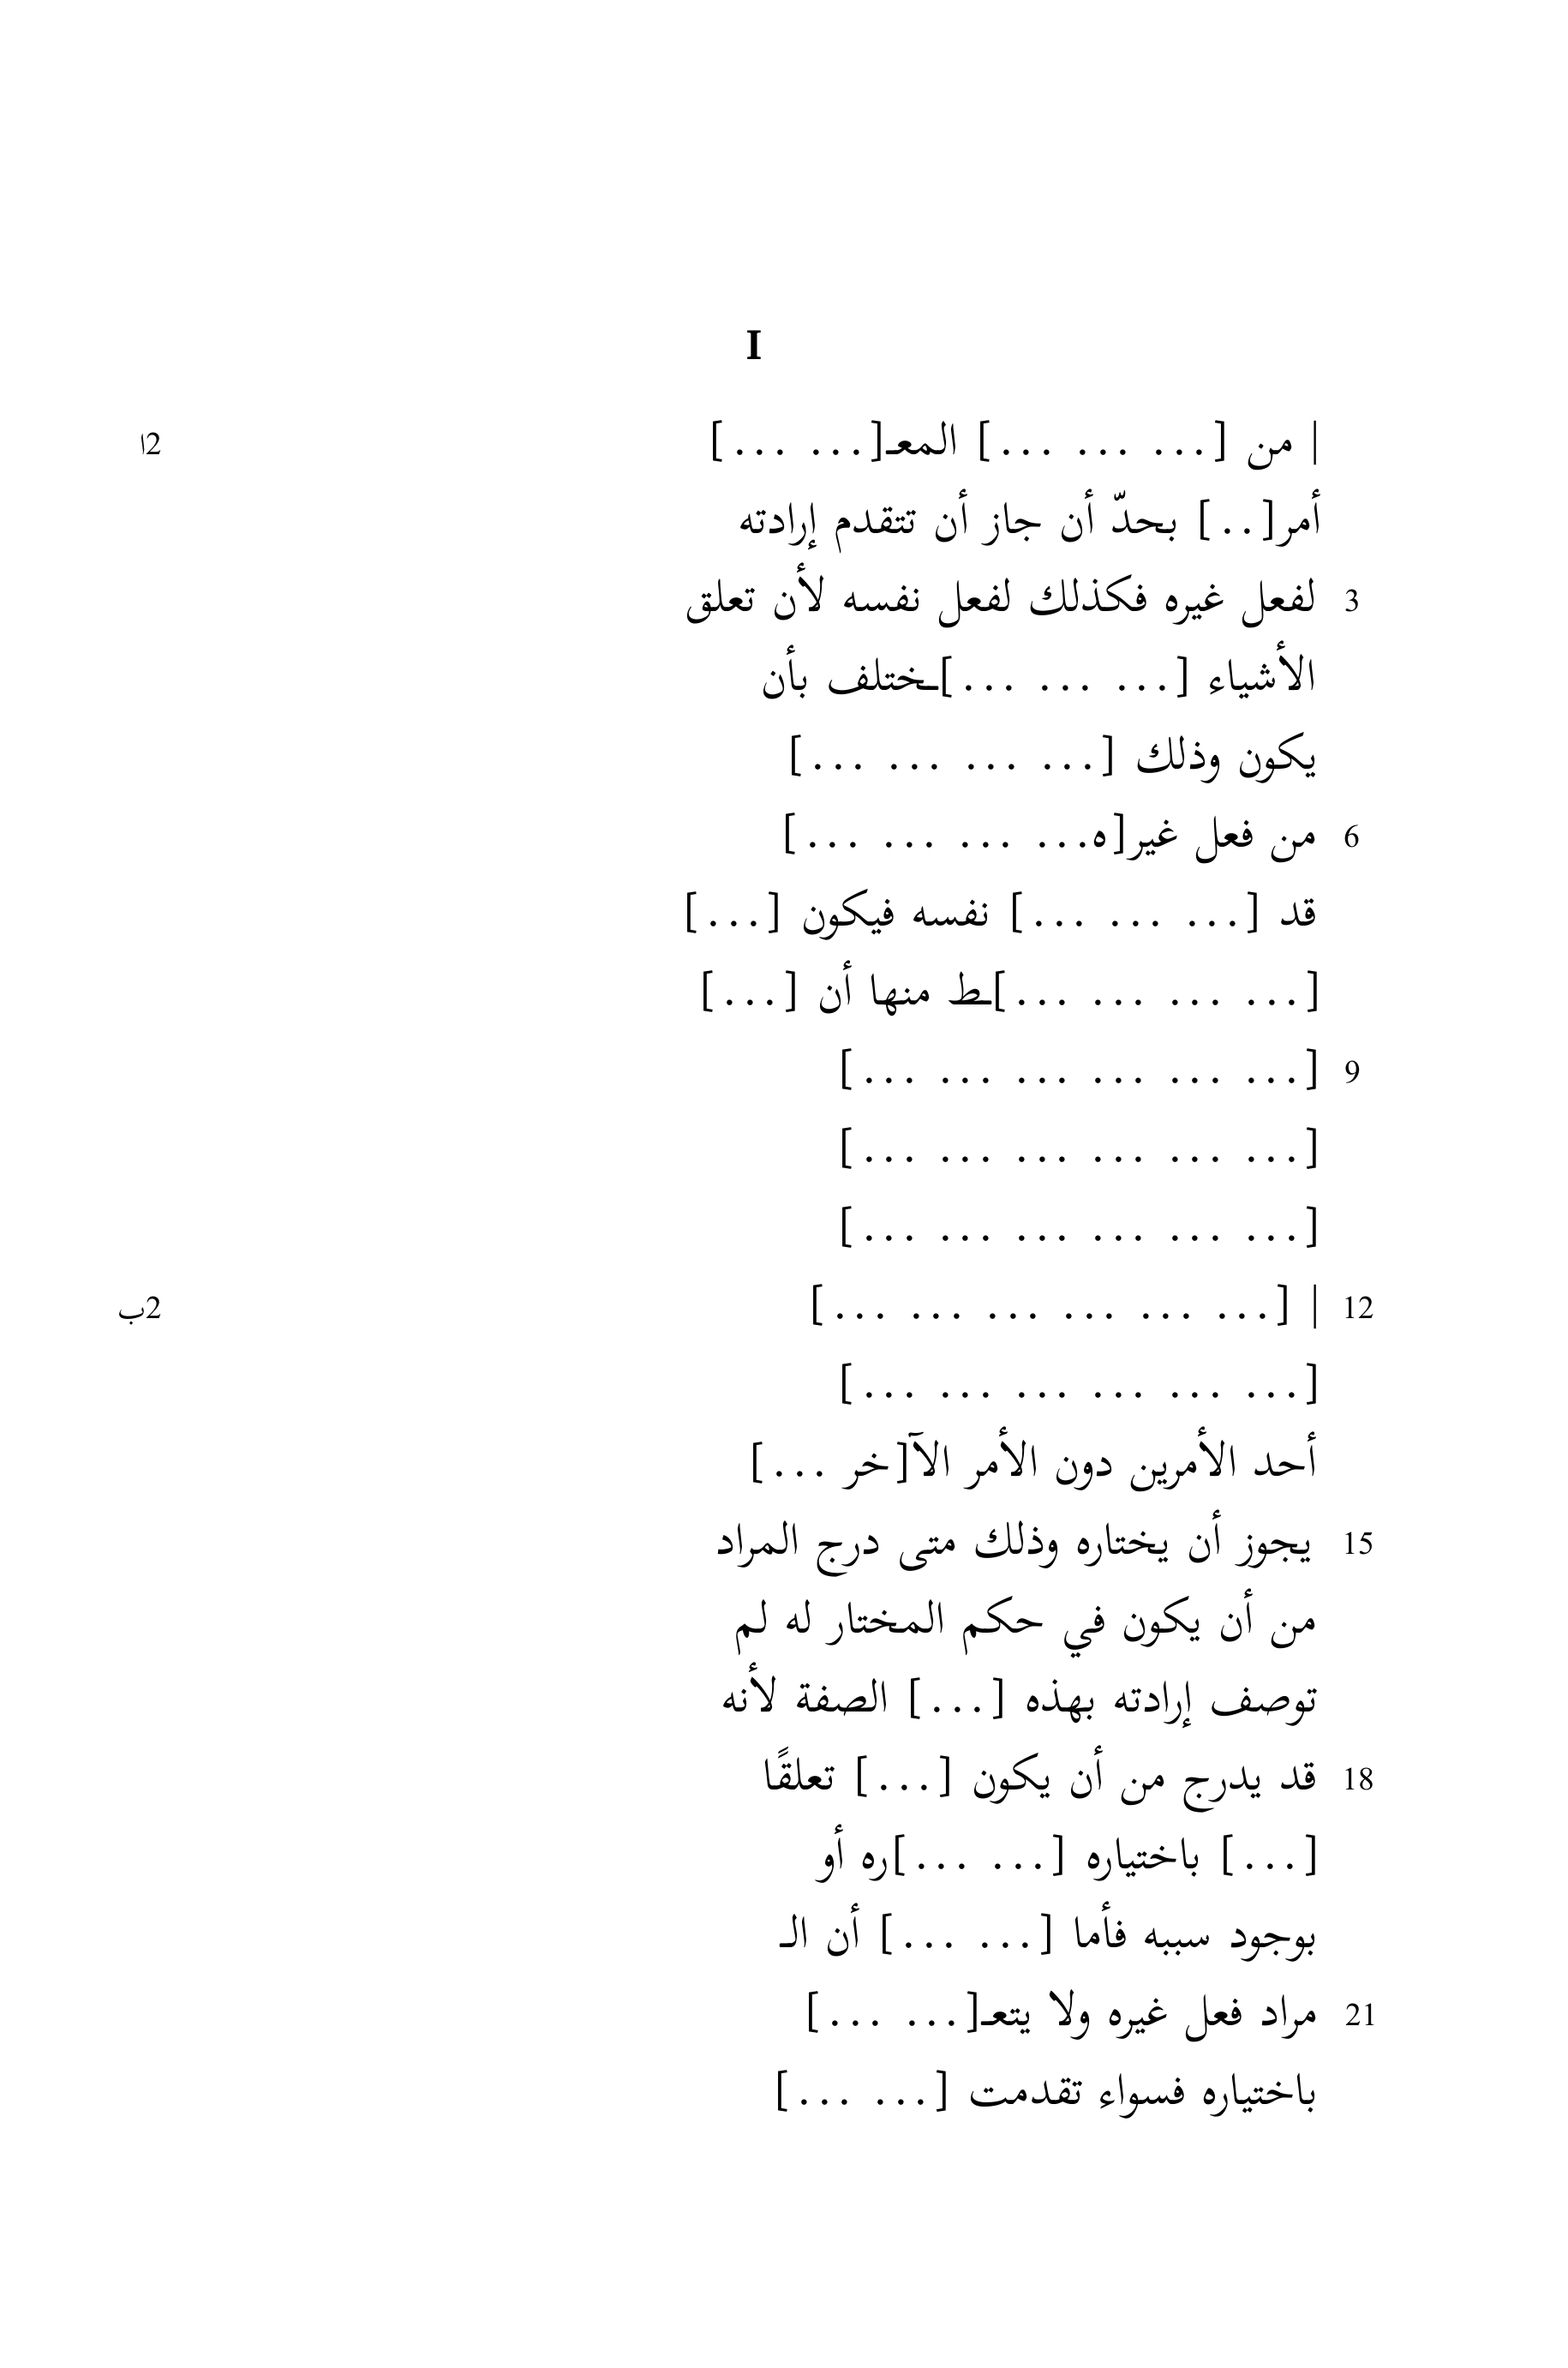 I
| من [... ... ...] المعـ[... ...] 2ا
أمر[..] بحدّ أن جاز أن تتقدم إرادته
3 لفعل غيره فكذلك لفعل نفسه لأن تعلق
الأشياء [... ... ...]ـختلف بأن
يكون وذلك [... ... ... ...]
6 من فعل غير[ه... ... ... ...]
قد [... ... ...] نفسه فيكون [...]
[... ... ... ...]ـط منها أن [...]
9 [... ... ... ... ... ...]
[... ... ... ... ... ...]
[... ... ... ... ... ...]
12 | [... ... ... ... ... ...] 2ب
[... ... ... ... ... ...]
أحد الأمرين دون الأمر الآ[خر ...]
15 يجوز أن يختاره وذلك متى درج المراد
من أن يكون في حكم المختار له لم
توصف إرادته بهذه [...] الصفة لأنه
18 قد يدرج من أن يكون [...] تعلقًا
[...] باختياره [... ...]ره أو
بوجود سببه فأما [... ...] أن الـ
21 مراد فعل غيره ولا يتعـ[... ...]
باختياره فسواء تقدمت [... ...]